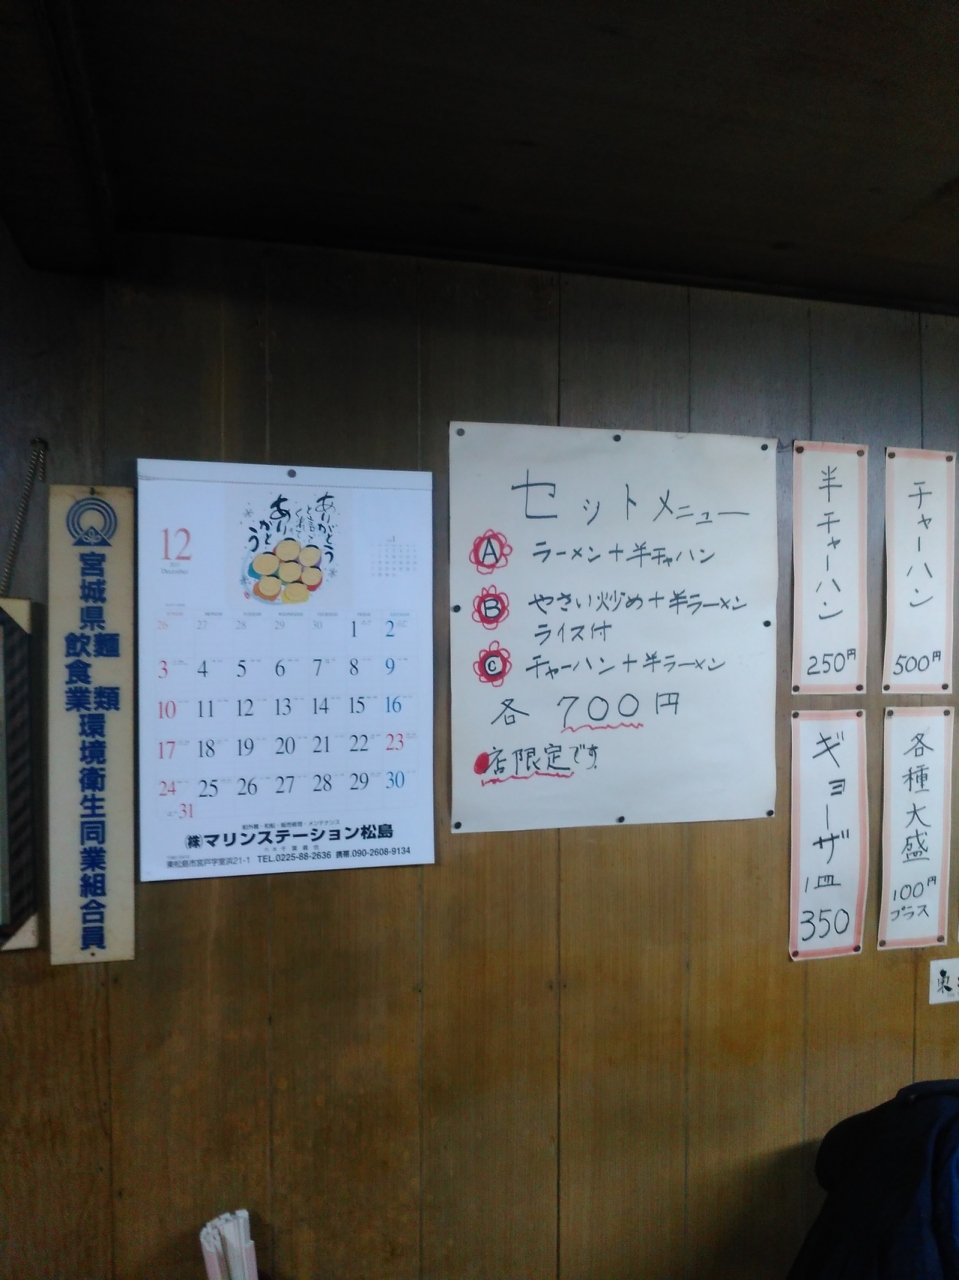 宮城県飲食業環境衛生同業組合員
麺類
12
December
ありがとう
ありがとう
26 27 28 29 30 1 2
3 4 5 6 7 8 9
10 11 12 13 14 15 16
17 18 19 20 21 22 23
24 25 26 27 28 29 30
31
㈱マリンステーション松島
東松島市宮戸字室浜21-1 TEL.0225-88-2636 携帯.090-2608-9134
セットメニュー
A ラーメン+半チャハン
B やさい炒め+半ラーメン
ライス付
C チャーハン+半ラーメン
各 700円
店限定です
半チャーハン
250円
チャーハン
500円
ギョーザ
1皿
350
各種大盛
100円
プラス